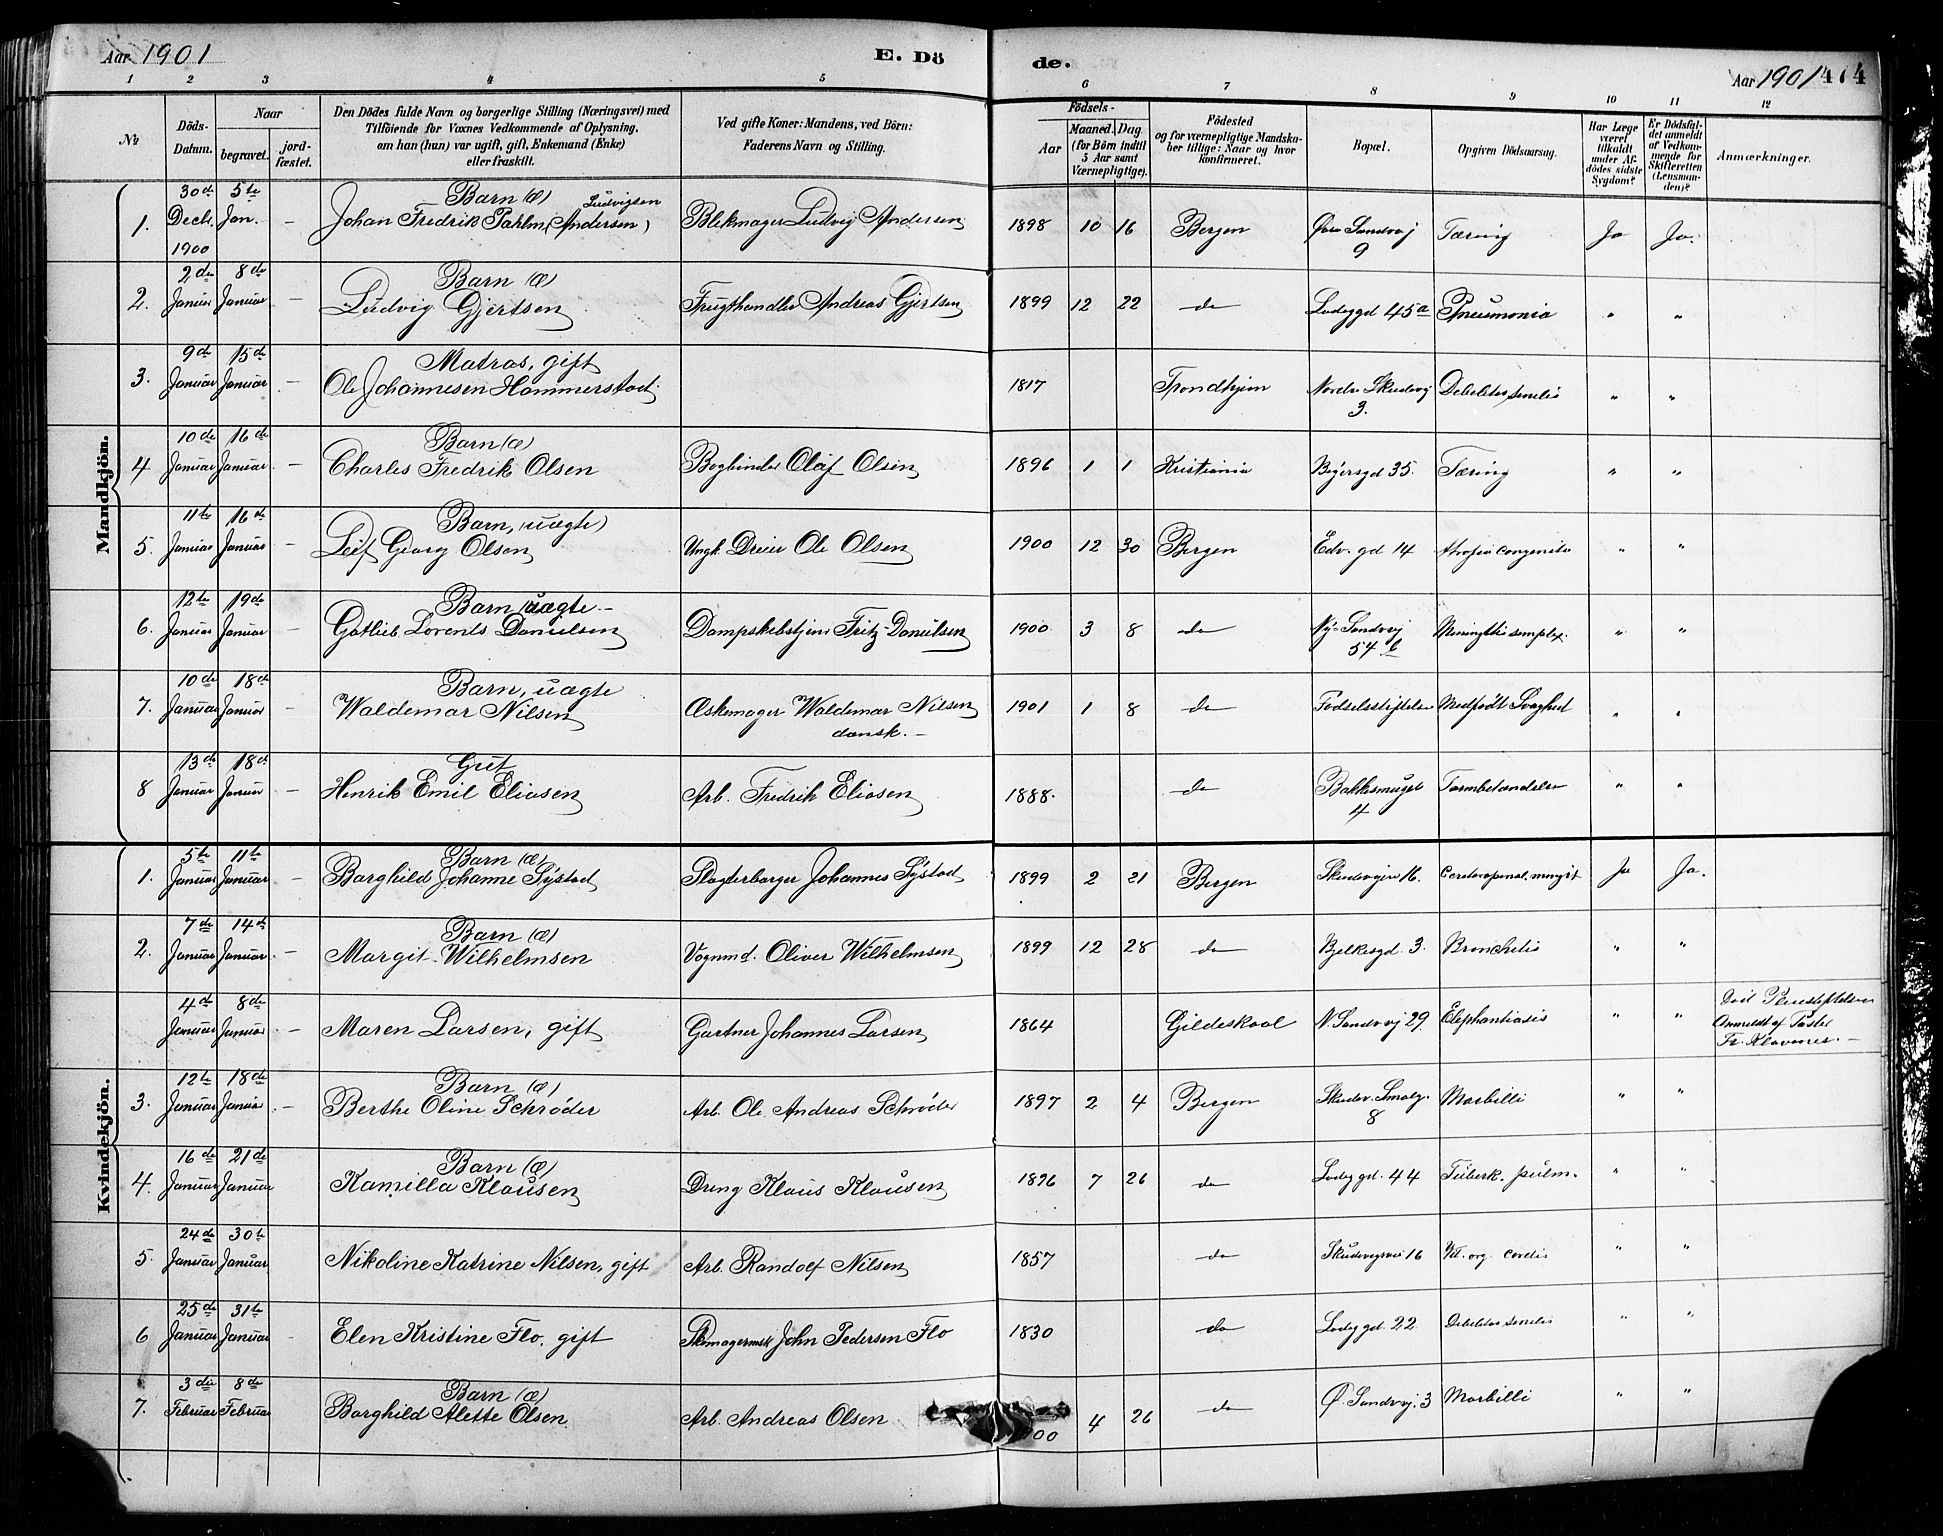 Aar 1901 E. Dö de. Aar 1901 474
1 2 3 4 5 6 7 8 9 10 11 12
No Döds-Datum. Naar begravet. jord-fæstet. Den Dödes fulde Navn og borgerlige Stilling (Næringsvei) med Tilföiende for Voxnes Vedkommende af Oplysning, om han (hun) var ugift, gift, Enkemand (Enke) eller fraskilt. Ved gifte Koner: Mandens, ved Börn: Faderens Navn og Stilling. Födsels- Aar Maaned. Dag. (for Börn indtil 5 Aar samt Værnepligtige). Födested og for værnepligtige Mandskaber tillige: Naar og hvor konfirmeret. Bopæl. Opgiven Dödsaarsag. Har Læge været tilkaldt under Afdödes sidste Sygdom? Er Dödsfaldet anmeldt af Vedkommende for Skifteretten (Lensmanden)? Anmærkninger.
Mandkjön.
1. 30de Decb. 1900 5te Jan. – Barn (æ) Johan Fredrik Pahlm (Andersen) Ludvigsen Blikmager Ludvig Andersen 1898 10 16 Bergen Øvre Sandvej 9 Tæring Ja Ja.
2. 2de Januar 8de Januar – Barn (æ) Ludvig Gjertsen Frugthandler Andreas Gjertsen 1899 12 22 do Lodeggd 45a Pneumonia " "
3. 9de Januar 15de Januar – Matros, gift Ole Johannesen Hammerstad. 1817 Trondhjem Nordre Skudevj 3. Debelitas senelis " "
4 10de Januar 16de Januar – Barn (æ) Charles Fredrik Olsen Bogbinder Olaf Olsen 1896 1 1 Kristiania Bøiersgd 35. Tæring " "
5. 11te Januar 16de Januar – Barn, (uægte) Leif Georg Olsen Ungk. Dreier Ole Olsen 1900 12 30 Bergen Edv. gd 14 Atrofia congenita " "
6. 12te Januar 19de Januar – Barn uægte – Gotlieb Lorents Danielsen Dampskibstjener Fritz Danielsen 1900 3 8 do Ny-Sandvj 54 b Meningitis simplex. " "
7. 10de Januar 18de Januar – Barn, uægte Waldemar Nilsen Æskemager Waldemar Nilsen dansk. – 1901 1 8 do Fødselsstiftelse Medfødt Svaghed " "
8 13de Januar 18de Januar – Gut Henrik Emil Eliasen Arb. Fredrik Eliasen 1888. do Bakkesmuget 4 Tarmbetændelse " "
Kvindekjön.
1. 5te Januar 11te Januar – Barn (æ) Borghild Johanne Systad Slagterborger Johannes Systad 1899 2 21 Bergen Skudevigsv 16. Cerebrospinal. mingit Ja Ja.
2. 7de Januar 14de Januar. – Barn (æ) Margit Wilhelmsen Vognmd. Oliver Wilhelmsen 1899 12 28 do Bjelkesgd. 3. Bronchitis " "
4de Januar 8de Januar – Maren Larsen, gift Gartner Johannes Larsen 1864 Gildeskaal N. Sandvj 29 Elephantiasis " " Død Pleiestiftelsen Anmeldt af Pastor Fr. Klavenes. –
3. 12te Januar 18de Januar – Barn (æ) Berthe Oline Schrøder Arb. Ole Andreas Schrøder 1897 2 4 Bergen Skudev. Smalg. 8 Morbilli " "
4. 16de Januar 21de Januar Barn (æ) Kamilla Klausen Dreng Klaus Klausen 1896 7 26 do Lodeg gd. 44 Tuberk. pulm. " "
5. 24de Januar 30te Januar Nikoline Katrine Nilsen, gift Arb. Randolf Nilsen 1857 do Skudevigsvei 16 Vit. org. cordis " "
6 25de Januar 31te Januar Elen Kristine Flo, gift Skomagermsk John Pedersen Flo 1830 do Lodeg gd. 22 Debelitas senelis " "
7. 3die Februar 8de Februar Barn (æ) Borghild Alette Olsen Arb. Andreas Olsen 00 4 26 do Ø. Sandvj. 3 Morbilli " "